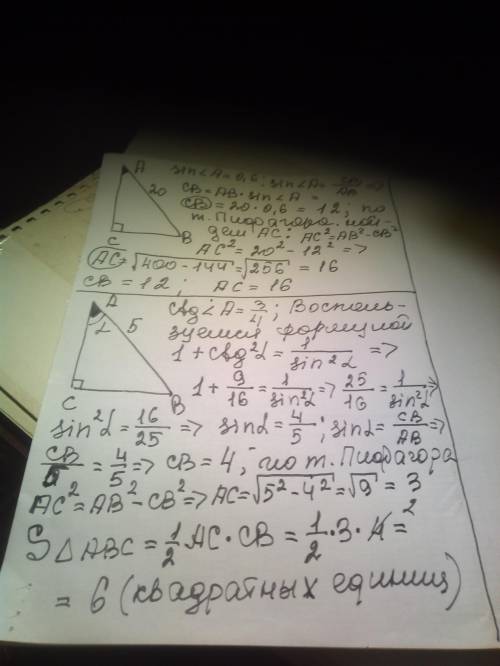 A
20
C
B
sin∠A=0,6; sin∠A= CB/AB =>
CB=AB·sin∠A =
CB=20·0,6=12; по
т. Пифагора. най-
дем AC: AC²=AB²-CB²
AC²=20²-12² =>
AC=√400-144=√256=16
CB=12; AC=16
A
α 5
C
B
ctg∠A=3/4; Восполь-
зуемся формулой
1+ctg²α=1/sin²α =>
1+9/16=1/sin²α=>25/16=1/sin²α=>
sin²α=16/25 => sinα=4/5; sinα=CB/AB=>
CB/5=4/5=> CB=4, по т. Пифагора
AC²=AB²-CB²=>AC=√5²-4²=√9=3
S△ABC=1/2·AC·CB=1/2·3·4²=
=6 (квадратных единиц)